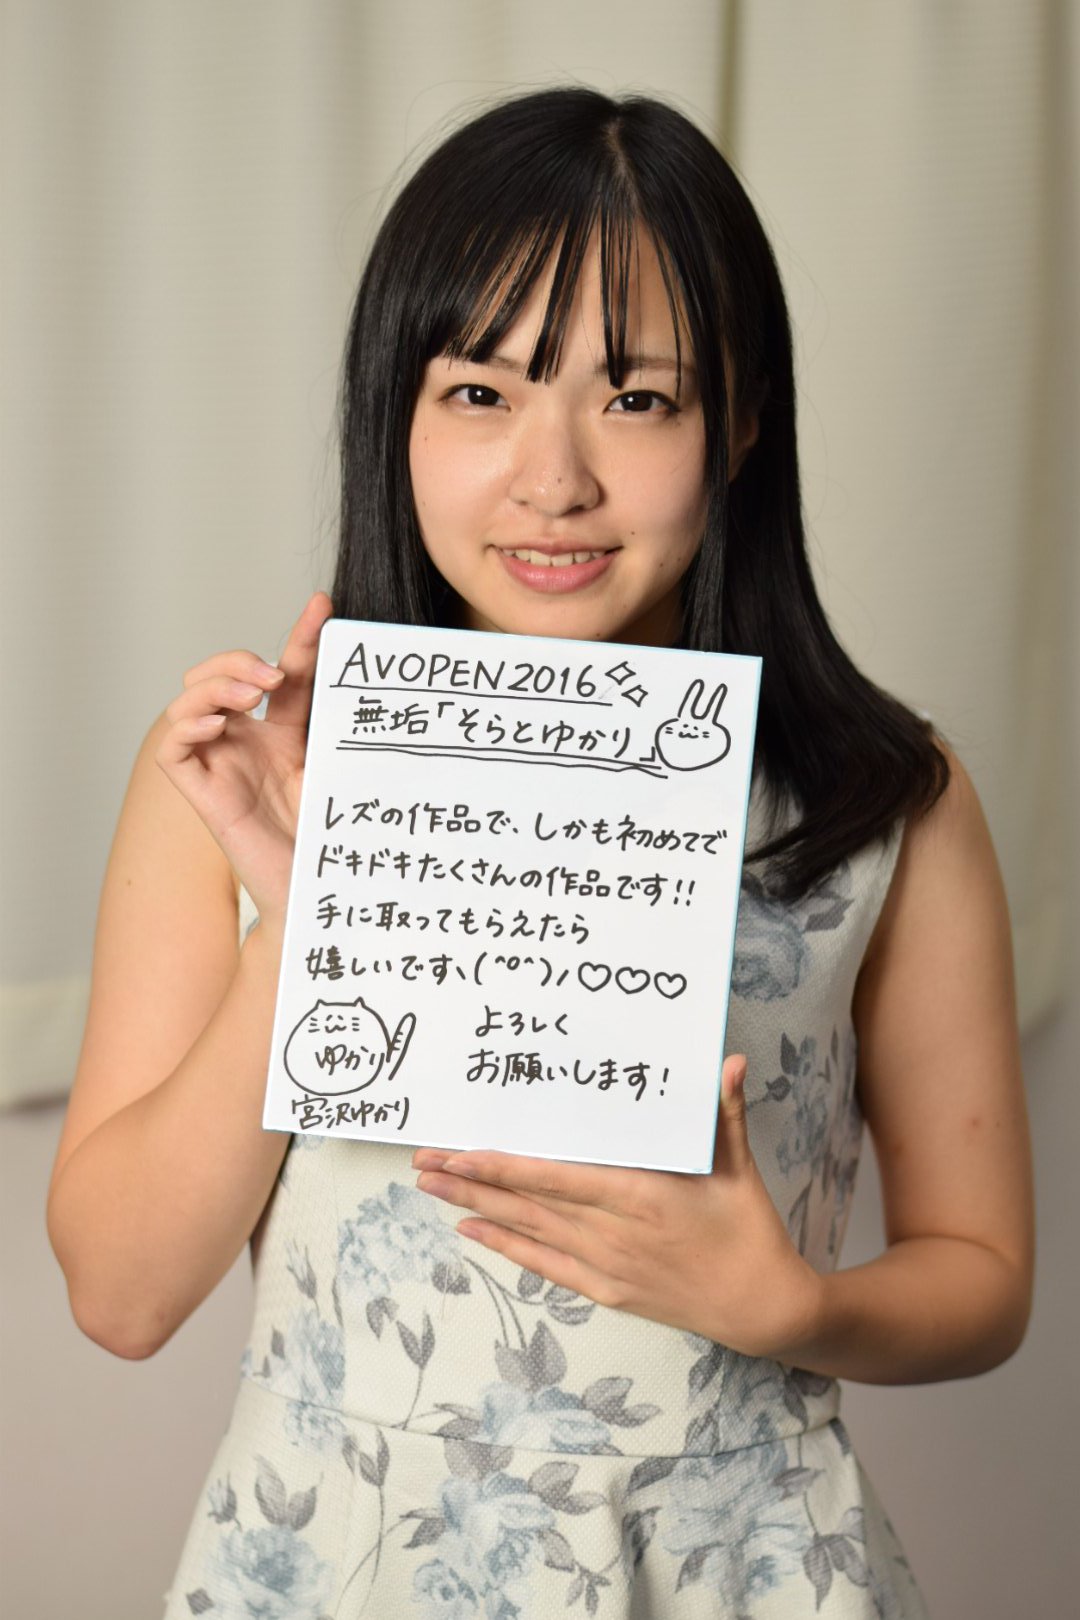 AVOPEN2016
無垢「そらとゆかり」
レズの作品で、しかも初めてで
ドキドキたくさんの作品です!!
手に取ってもらえたら
嬉しいですヽ(^o^)ノ♡♡♡
よろしく
お願いします!
ゆかり
宮沢ゆかり